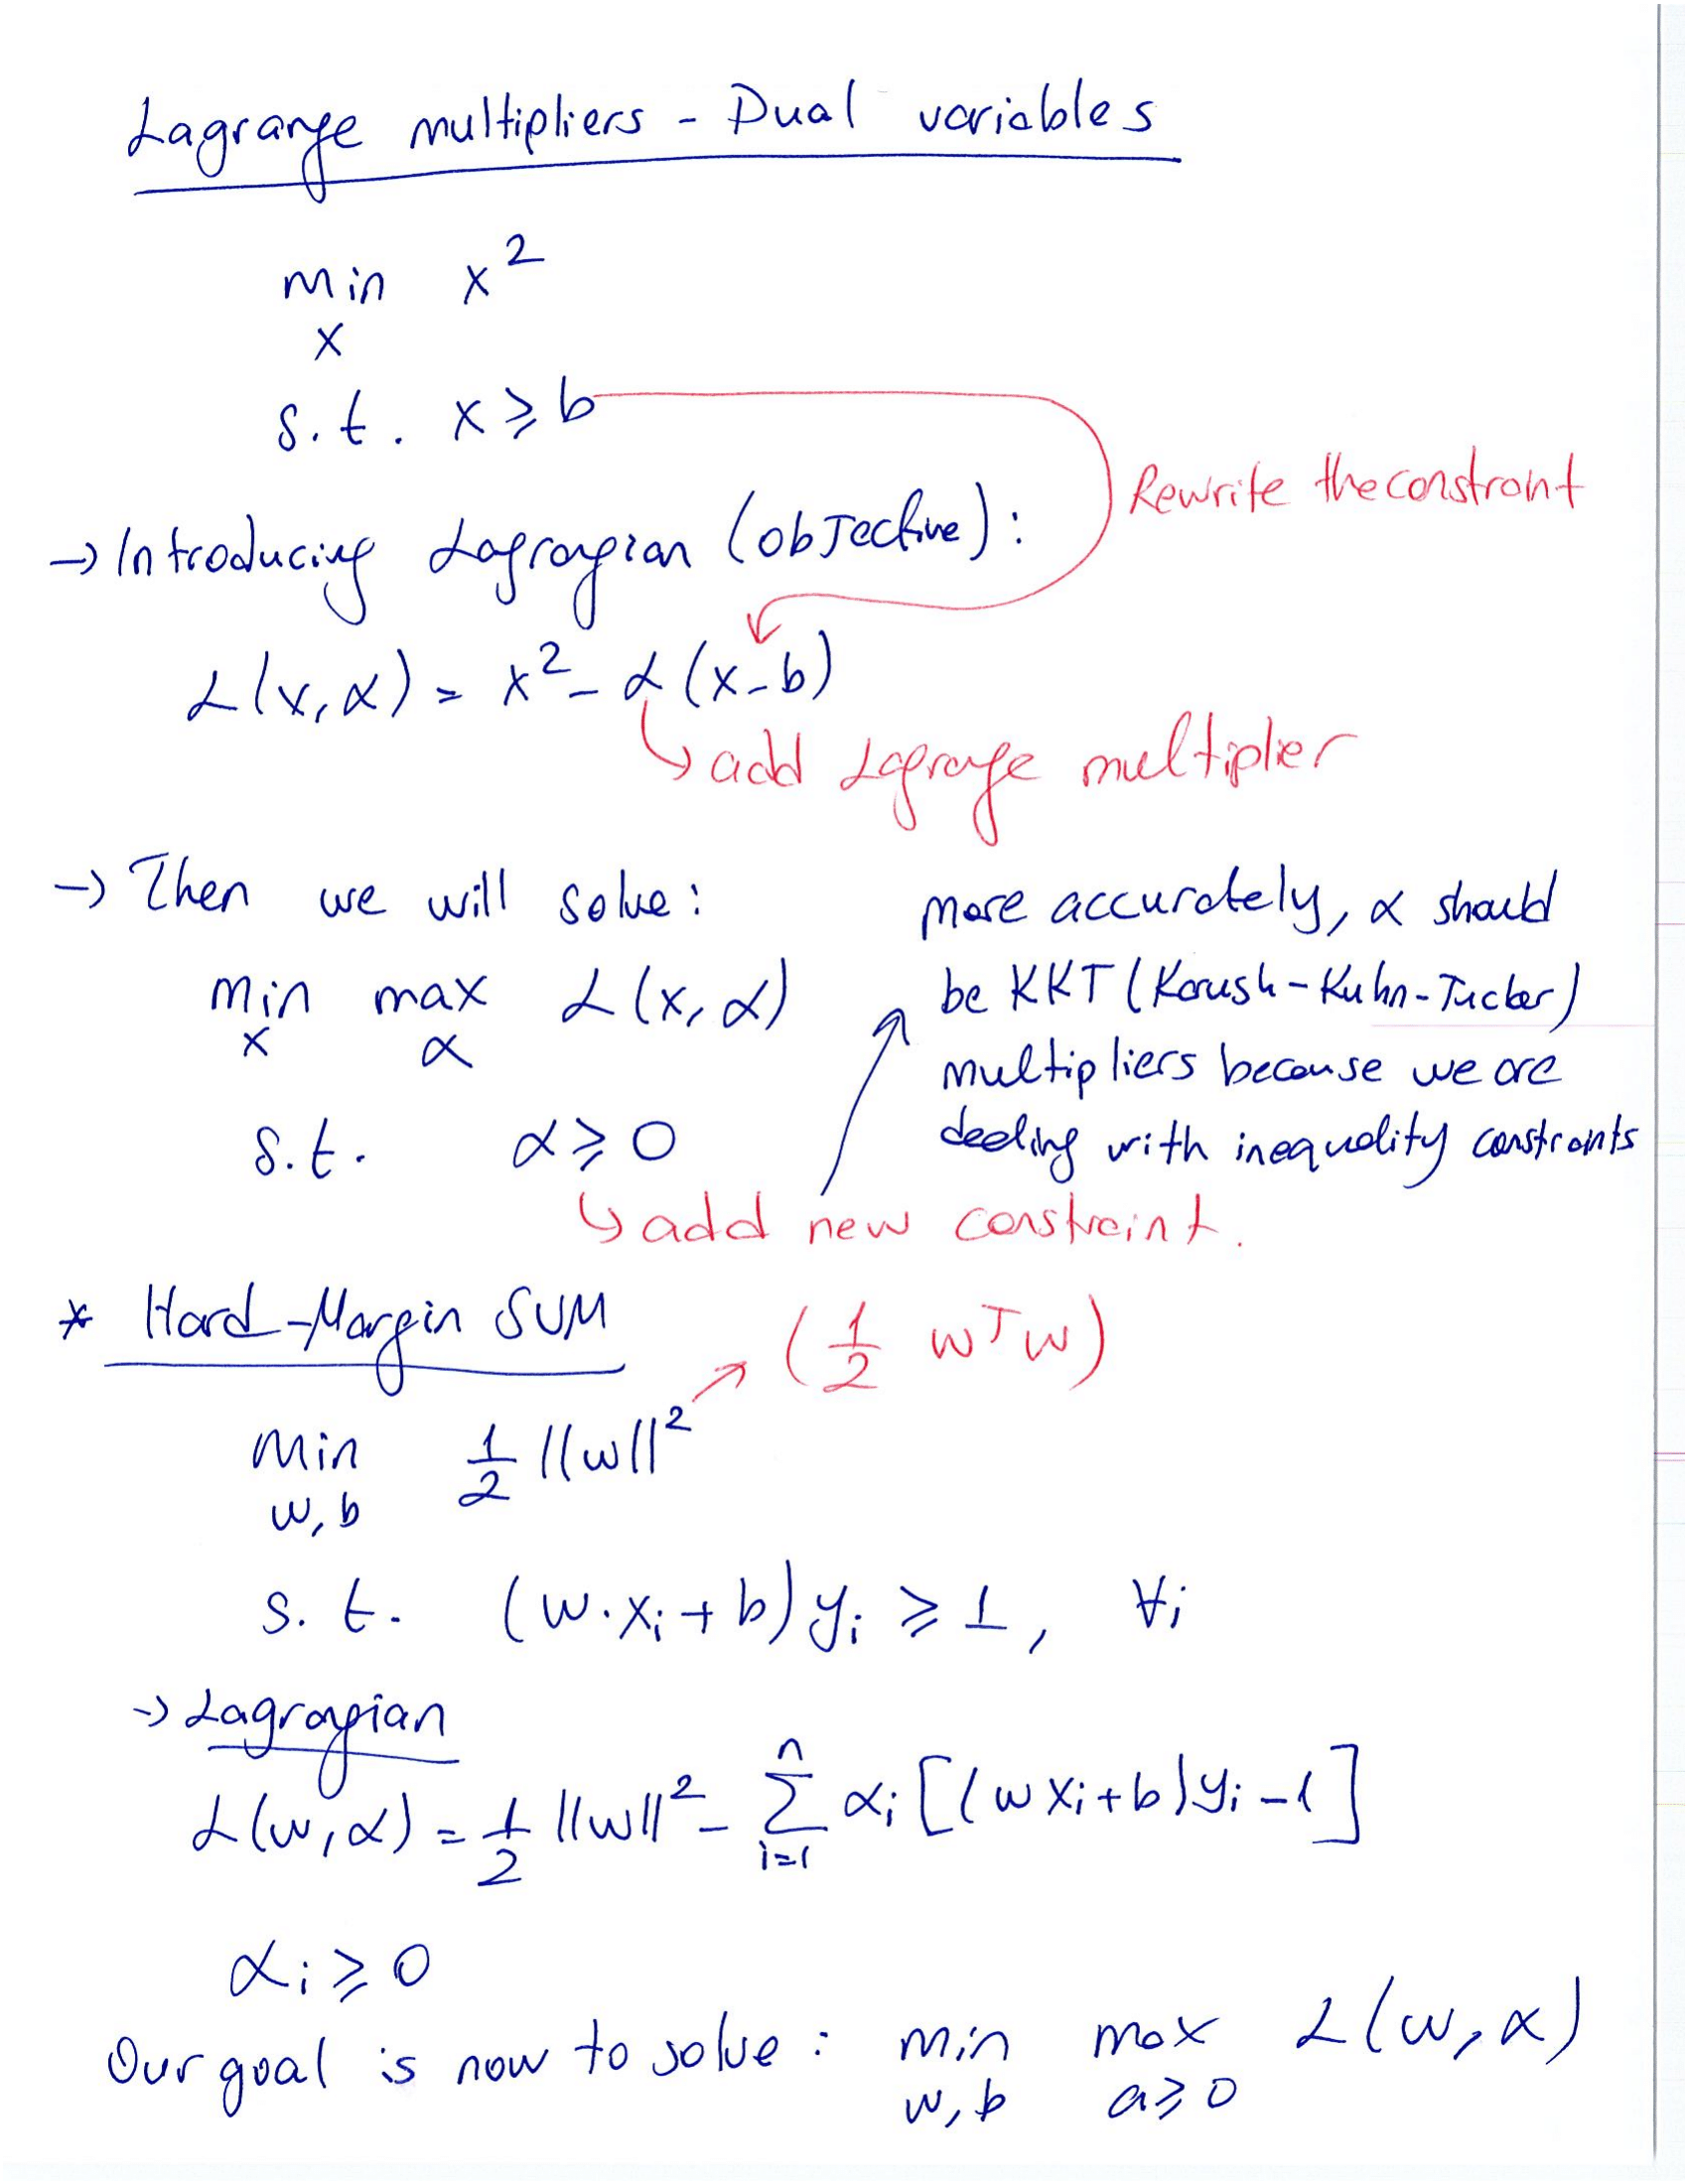 Lagrange multipliers - Dual variables
min x²
x
s.t. x ≥ b
Rewrite the constraint
→ Introducing Lagrangian (objective):
L(x,α) = x² - α(x-b)
↳ add Lagrange multiplier
→ Then we will solve:
min max L(x,α)
x α
s.t. α ≥ 0
↳ add new constraint.
more accurately, α should
be KKT (Karush-Kuhn-Tucker)
multipliers because we are
dealing with inequality constraints
* Hard-Margin SVM
(½ wᵀw)
min ½ ||w||²
w,b
s.t. (w·xᵢ+b)yᵢ ≥ 1, ∀i
→ Lagrangian
L(w,α) = ½ ||w||² - Σⁿᵢ₌₁ αᵢ[(wxᵢ+b)yᵢ-1]
αᵢ ≥ 0
Our goal is now to solve: min max L(w,α)
w,b a≥0